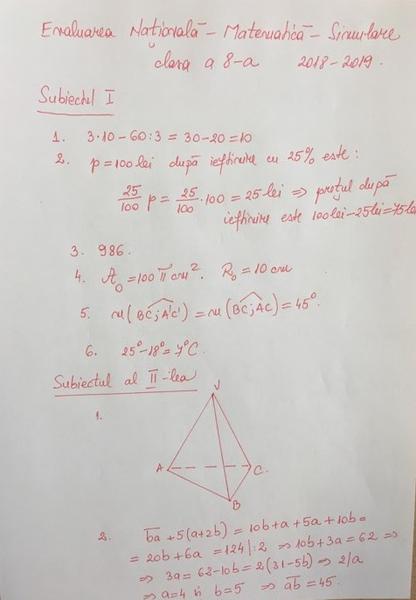 Evaluarea Națională - Matematică - Simulare
clasa a 8-a 2018-2019.
Subiectul I
1. 3·10-60:3=30-20=10
2. p=100lei după ieftinire cu 25% este:
25/100 p = 25/100 · 100 = 25 lei ⇒ prețul după
ieftinire este 100lei-25lei=75lei
3. 986.
4. A₀=100π cm². R₀=10cm
5. m(BC;A'C')=m(BC;AC)=45°.
6. 25°-18°=7°C.
Subiectul al II-lea
1.
V
A
C
B
2. ba+5(a+2b)=10b+a+5a+10b=
=20b+6a =124|:2 ⇒10b+3a=62 ⇒
⇒ 3a=62-10b=2(31-5b) ⇒ 2/a
⇒ a=4 și b=5 ⇒ ab=45.